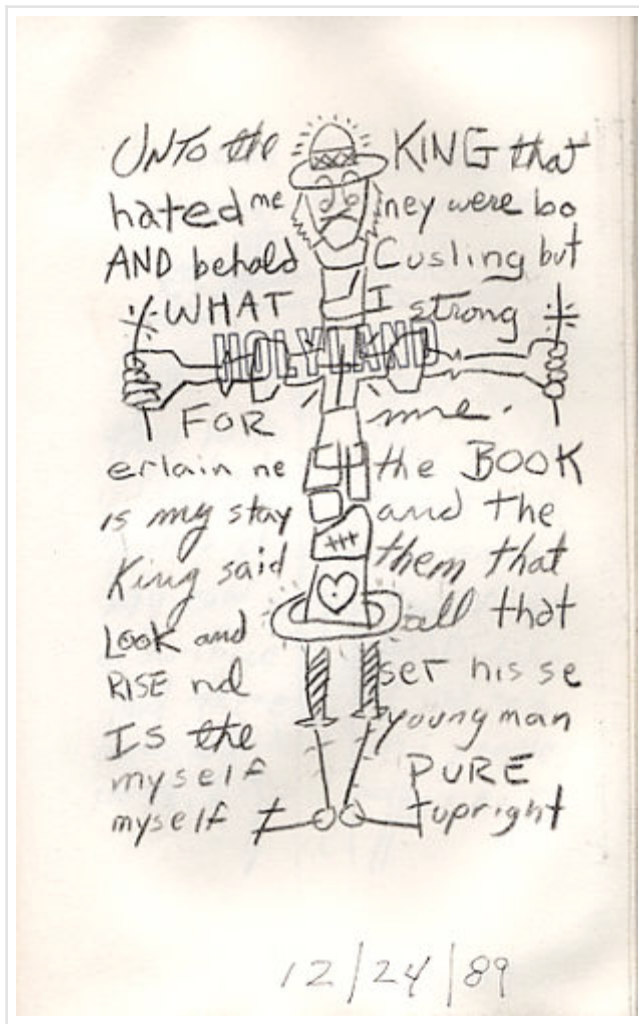 UNTO the KING that
hated me ney were bo
AND behold Cusling but
WHAT I strong
HOLYLAND
FOR me.
erlain ne the BOOK
is my stay and the
King said them that
LOOK and all that
RISE nd set his se
IS the young man
myself PURE
myself upright
12/24/89